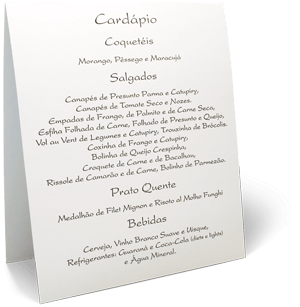 Cardápio
Coquetéis
Morango, Pêssego e Maracujá
Salgados
Canapés de Presunto Parma e Catupiry,
Canapés de Tomate Seco e Nozes.
Empadas de Frango, de Palmito e de Carne Seca,
Esfiha Folhada de Carne, Folhado de Presunto e Queijo,
Vol au Vent de Legumes e Catupiry, Trouxinha de Brócolis.
Coxinha de Frango e Catupiry,
Bolinha de Queijo Crespinha,
Croquete de Carne e de Bacalhau,
Rissole de Camarão e de Carne, Bolinho de Parmezão.
Prato Quente
Medalhão de Filet Mignon e Risoto al Molho Funghi
Bebidas
Cerveja, Vinho Branco Suave e Uisque,
Refrigerantes: Guaraná e Coca-Cola (diets e lights)
e Água Mineral.